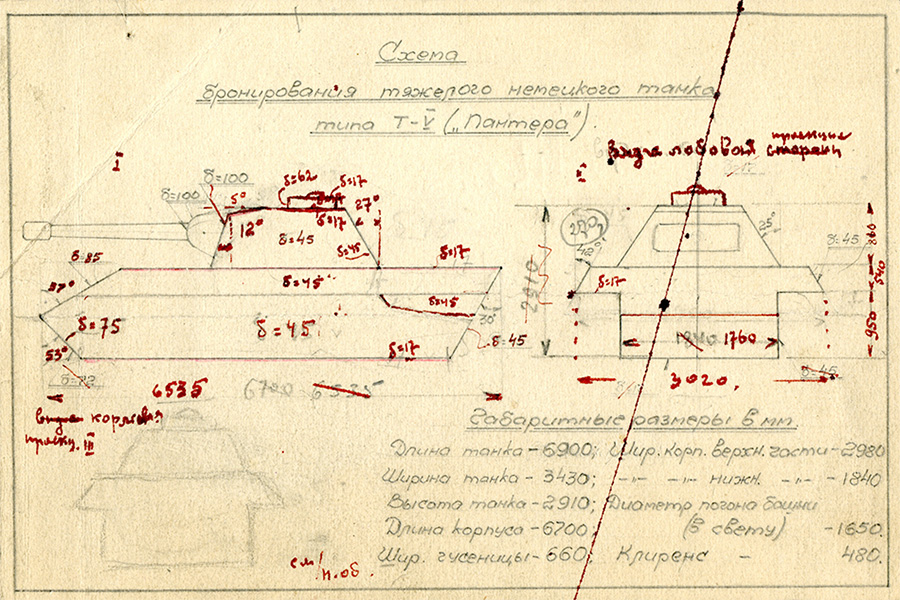 Схема
бронирования тяжелого немецкого танка
типа Т-V („Пантера")
лобовая проекция
стерени
I
II
δ=100
δ=62
δ=17
δ=100
5°
δ=17
27°
12°
δ=45
δ=45
δ=17
δ=85
δ=45
37°
δ=45
δ=75
δ=45
30°
δ=45
53°
δ=17
δ=72
6535
6700 6535
2910
42°
25°
δ=45
δ=17
860
540
950
1840 1760
δ=45
3020.
кормовая
III
Габаритные размеры в мм.
Длина танка-6900; Шир. корп. верхн. части-2980
Ширина танка-3430; -"- -"- нижн. -"- -1840
Высота танка-2910; Диаметр погона башни
Длина корпуса-6700, (в свету) -1650.
Шир. гусеницы-660, Клиренс - 480.
см/
н.об.